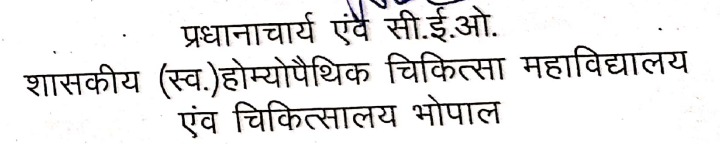 प्रधानाचार्य एंवं सी.ई.ओ.
शासकीय (स्व.)होम्योपैथिक चिकित्सा महाविद्यालय
एंव चिकित्सालय भोपाल